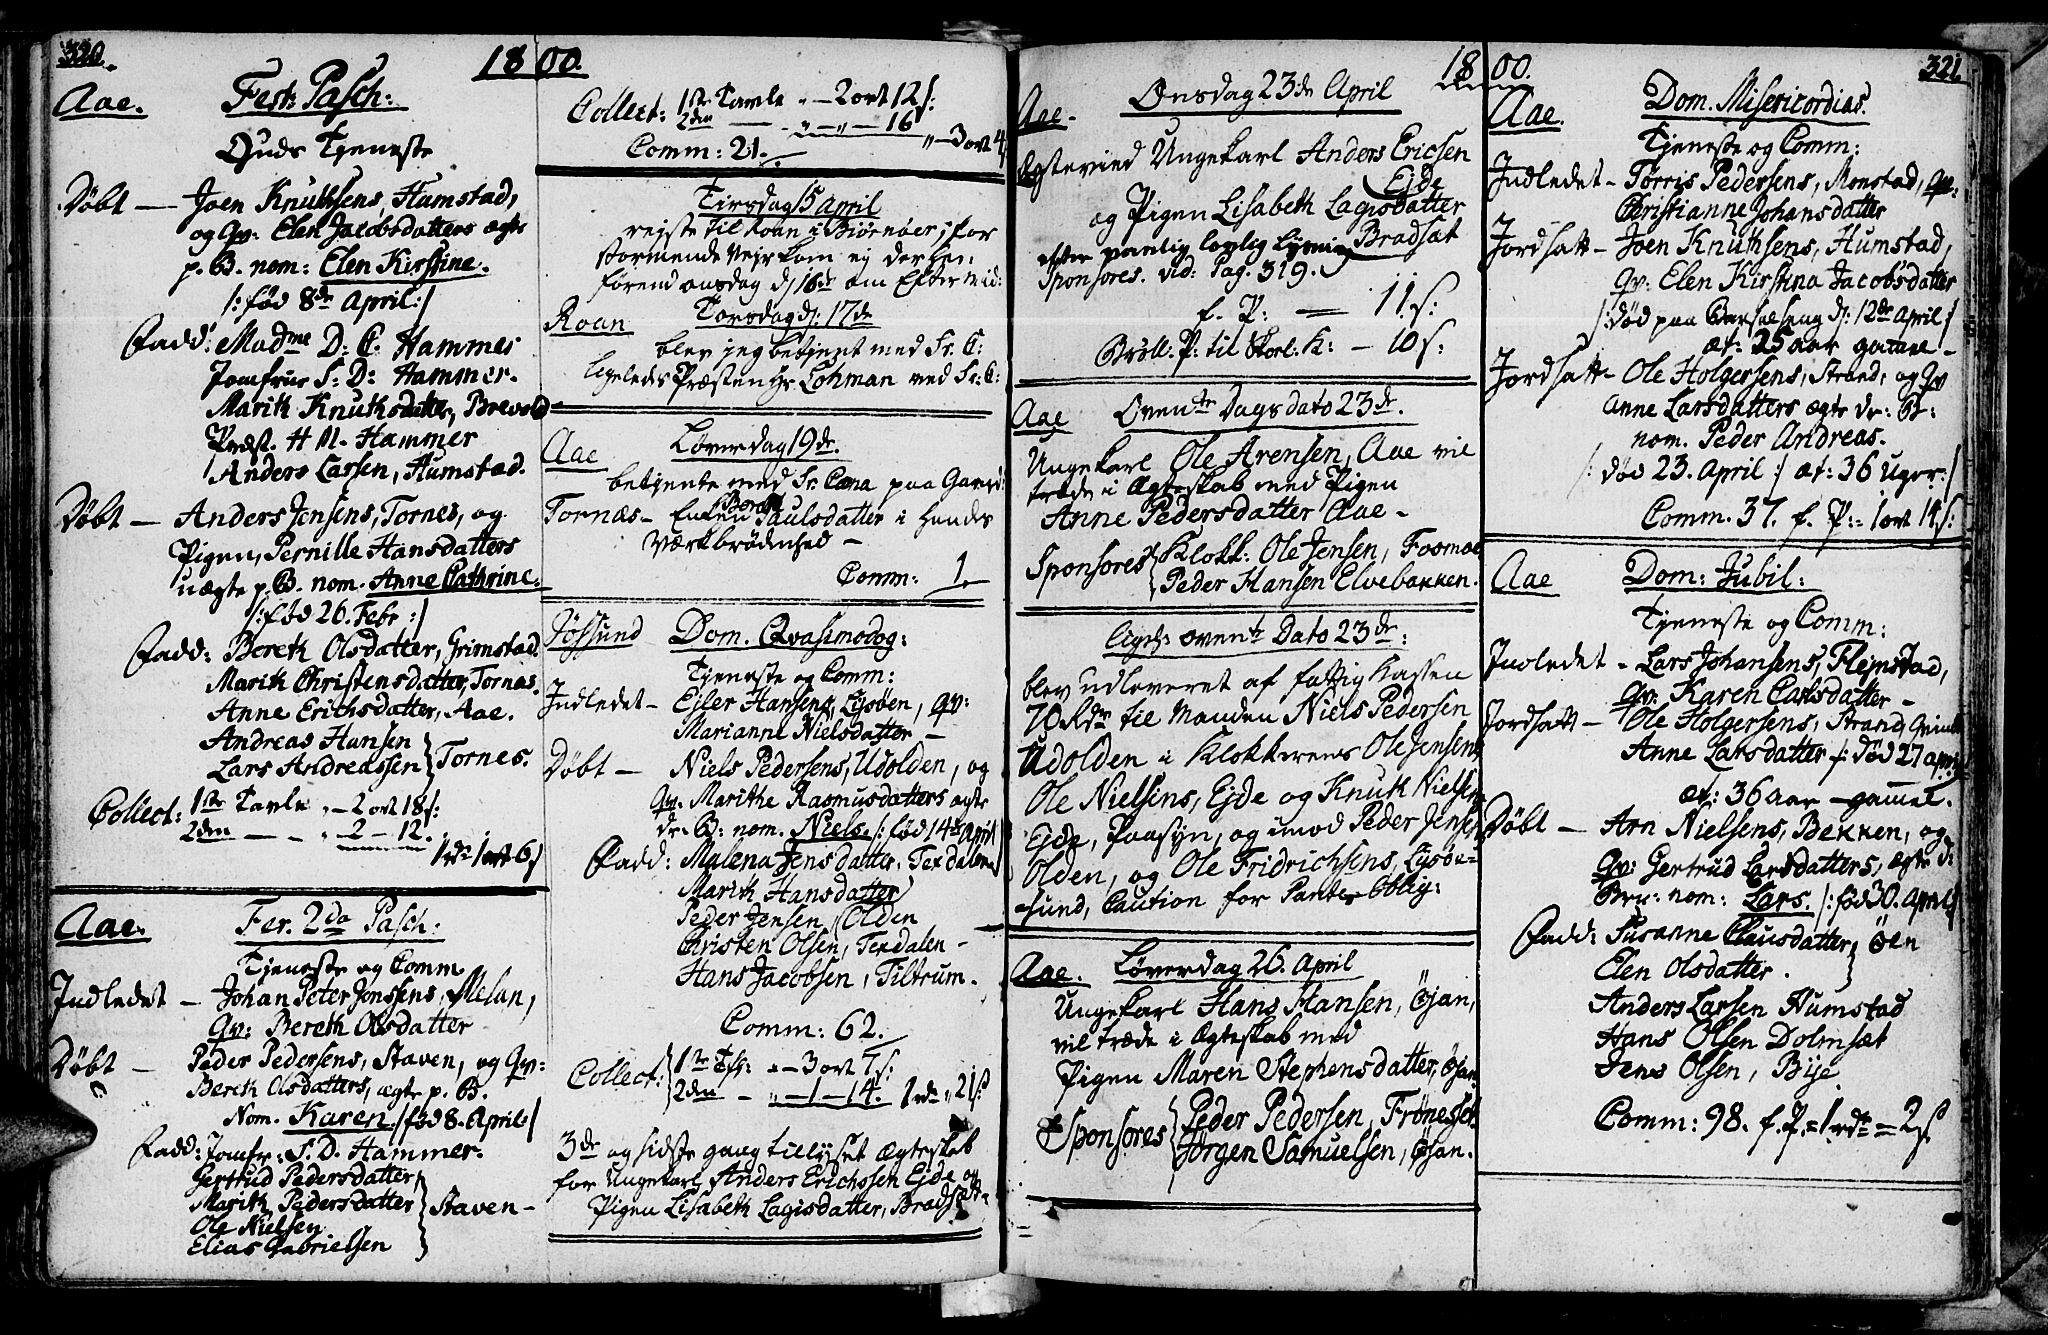 320.
1800.
Aae. Fest: Pasch:
Guds Tjeneste
Døbt — Joen Knuthsens, Humstad,
og Qv: Elen Jacobsdatters ægte
p. B. nom: Elen Kirstine.
/: fød 8de April :/
Fadd: Madme D: C. Hammer
Jomfrue S: D: Hammer.
Marith Knuthsdatter, Brevold
Præst. H M. Hammer
Anders Larsen, Humstad.
Døbt — Anders Jensens, Tornes, og
Pigen, Pernille Hansdatters
uægte p. B. nom. Anne Cathrine.
/: fød 26. Febr :/
Fadd: Bereth Olsdatter, Grimstad.
Marith Christensdatter, Tornæs.
Anne Erichsdatter, Aae.
Andreas Hansen
Lars Andreassen } Tornes.
Collect: 1ste Tavle „ — 2 ort 18 s:
2den — — „ — 2 — 12.
1 rdr 1 ort 6 s
Aae. Fer. 2da Pasch:
Tjeneste og Comm
Indledet — Johan Peter Jonssens, Melan,
Qv: Bereth Olsdatter
Døbt — Peder Pedersens, Staven, og Qv:
Bereth Olsdatters, ægte p. B.
Nom. Karen /: fød 8. April :/
Fadd: Jomfr: S. D. Hammer.
Gertrud Pedersdatter
Marith Pedersdatter } Staven —
Ole Nielsen
Elias Gabrielsen
Collect: 1ste Tavle „ — 2 ort 12 s:
2den — „ — „ — 16
„ — 3 ort 4 s
Comm: 21.
Tirsdag 15 April
rejste til Roan i Biørnøer; for
stormende Vejr kom ej derhen,
førend onsdag d. 16de om Eftermid:
Roan Torsdag d: 17de
blev jeg betjent med Sr. C:
ligeledes Præsten Hr Lohman med Sr: C:
Aae Løverdag 19de.
betjente med Sr. Cæna paa Gaard:
Tornæs — Enken Bereth Paulsdatter i hendes
Værkbrødenhed —
Comm: 1.
Jøssund Dom. Qvasimodog:
Tjeneste og Comm:
Indledet — Ejler Hansens, Lysøen, Qv:
Marianne Nielsdatter —
Døbt — Niels Pedersens, Udolden, og
Qv. Marithe Rasmusdatters ægte
dr. B: nom. Niels /: fød 14de April
Fadd: Malena Jensdatter, Terdalen
Marith Hansdatter
Peder Jensen } Olden
Christen Olsen, Terdalen —
Hans Jacobsen, Tiltrum.
Comm: 62.
Collect: 1ste Tfl: „ — 3 ort 7 s:
2den — „ — 1 — 14. 1 rdr „ 21 s
3de og sidste gang tillyset Ægteskab
for Ungekarl Anders Erichssen Ejde og
Pigen Lisabeth Lagisdatter, Bradsæt.
321
1800.
Onsdag 23de April
Aae.
Ægtevied Ungekarl Anders Ericsen
Ejde
og Pigen Lisabeth Lagisdatter
efter vanlig lovlig Lysning Bradsæt
Sponsores. vid: Pag. 319.
f. P: — 11 s:
Bryll. P: til Skorl. K: — 10 s:
Aae Ovente Dags dato 23de.
Ungekarl Ole Arensen, Aae vil
træde i Ægteskab med Pigen
Anne Pedersdatter Aae —
Sponsores { Klokk: Ole Jensen, Fosmoe
Peder Hansen Elvebakken.
Ligel: ovente Dato 23de:
blev udleveret af fattig Kassen
70 Rdr til Manden Niels Pedersen
Udolden i Klokkerens Ole Jensens
Ole Nielsens, Ejde og Knuth Nielsens
Ejde, Paasyn, og imod Peder Jensen
Olden, og Ole Fridrichsens, Lysøe-
sund, Caution for Pante Oblig:
Aae. Løverdag 26. April
Ungekarl Hans Hansen, Øjan,
vil træde i Ægteskab med
Pigen Maren Stephensdatter, Øjan
Sponsores { Peder Pedersen, Frønessæt
Jørgen Samuelsen, Øjan.
Aae. Dom. Misericordias.
Tjeneste og Comm:
Indledet — Tørris Pedersens, Monstad, Qv:
Christianne Johansdatter
Jordsatt — Joen Knuthsens, Humstad,
Qv: Elen Kirstina Jacobsdatter
/: død paa Barselseng d: 12de April :/
æt: 25 aar gamel —
Jordsatt — Ole Holgersens, Strand, og Qv
Anne Larsdatters ægte dr: B:
nom. Peder Andreas.
/: død 23. April :/ æt: 36 uger :/
Comm. 37. f. P: = 1 ort 14 s:
Aae Dom: Jubil:
Tjeneste og Comm:
Indledet — Lars Johansens, Flejnstad,
Qv: Karen Carlsdatter —
Jordsatt — Ole Holgersens, Strand, Qvinde
Anne Larsdatter /: død 27 april
æt: 36 aar — gamel.
Døbt — Arn Nielsens, Bekken, og
Qv: Gertrud Larsdatters, ægte dr:
Brn: nom: Lars. /: fød 30. April /
Fadd: Susanne Clausdatter } Øen
Elen Olsdatter.
Anders Larsen Humstad
Hans Olsen Dolmsæt
Jens Olsen, Bije
Comm: 98. f. P. = 1 rdr = 2 s